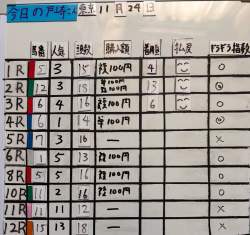 今日の戸崎さん 東京 11月24日
馬番 人気 頭数 購入額 着順 払戻 ドラドラ指数
1R 5 3 15 複100円 4 ○
2R 12 3 18 単100円 複100円 13 ◎
3R 6 4 16 複100円 6 ○
4R 6 1 14 単100円 ◎
5R 7 3 10 ― ×
6R 1 5 13 複100円 ○
8R 5 5 16 複100円 ○
10R 11 2 16 複100円 ○
11R 11 11 12 ― ×
12R 15 13 18 ― ×